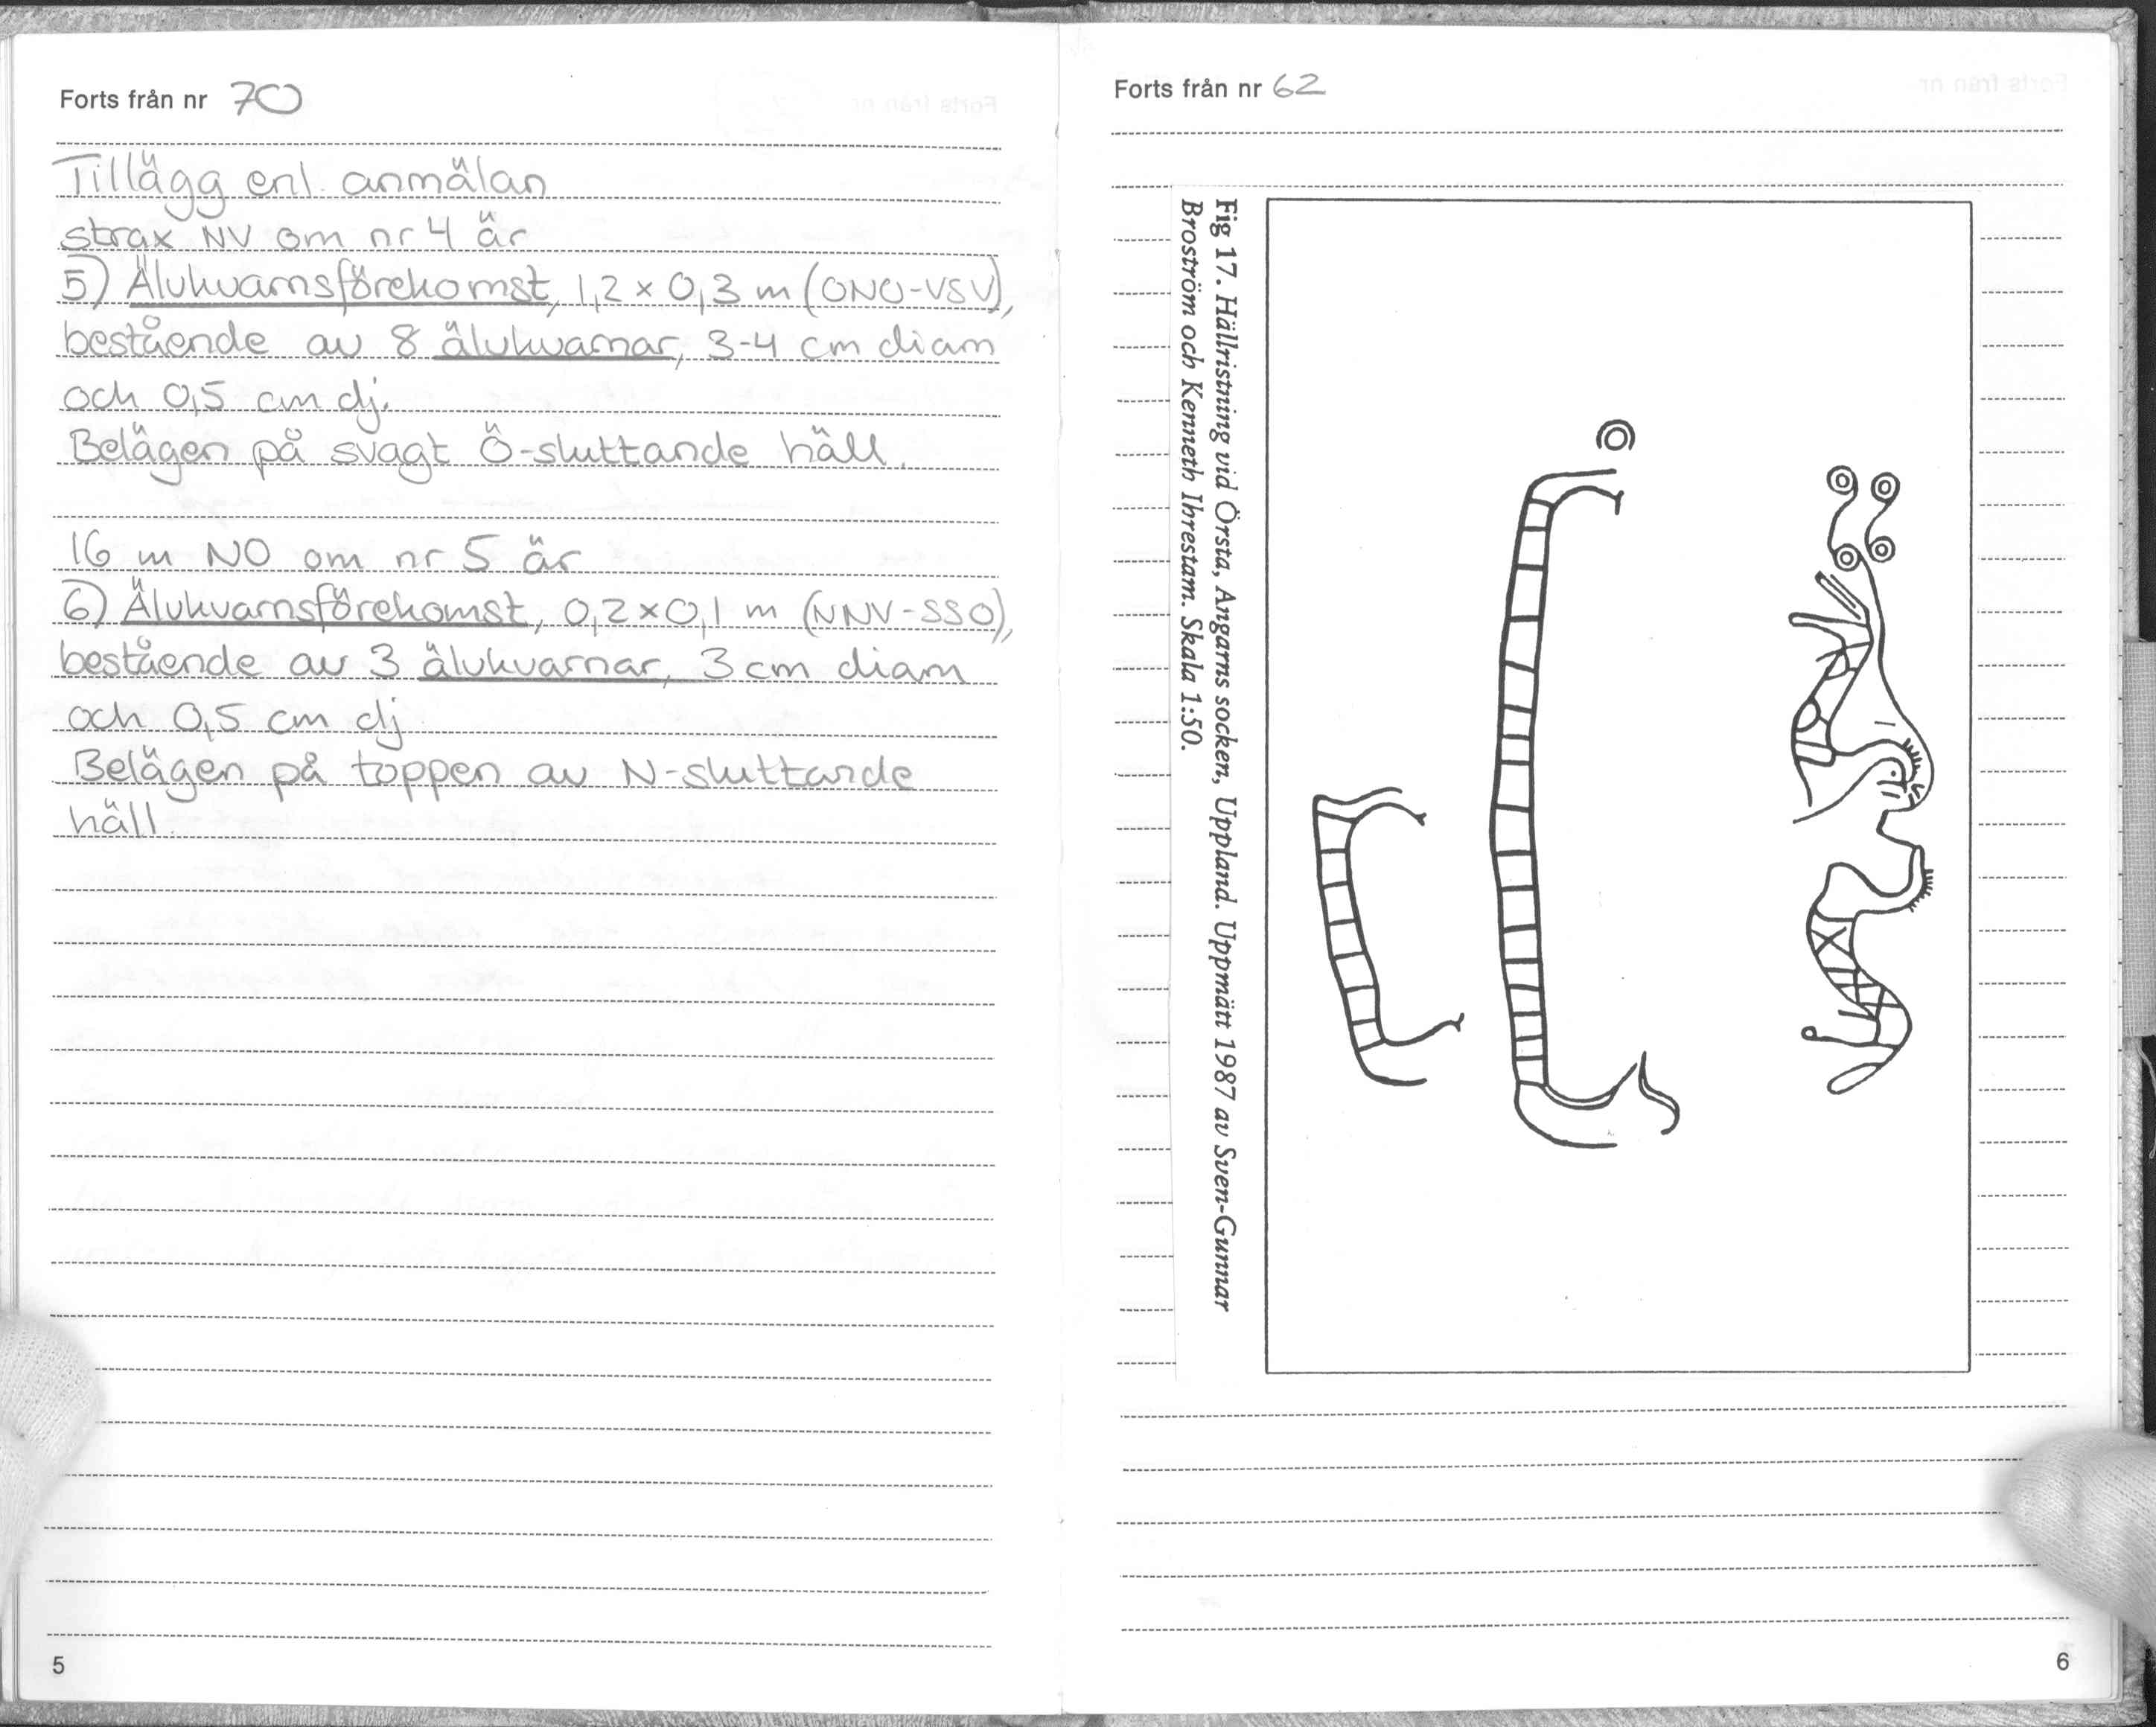 Forts från nr 70
Tillägg enl. anmälan
strax NV om nr 4 är
5) Älvkvarnsförekomst, 1,2 x 0,3 m (ONO-VSV),
bestående av 8 älvkvarnar, 3-4 cm diam
och 0,5 cm dj.
Belägen på svagt Ö-sluttande häll.
16 m NO om nr 5 är
6) Älvkvarnsförekomst, 0,2 x 0,1 m (NNV-SSO),
bestående av 3 älvkvarnar, 3 cm diam
och 0,5 cm dj.
Belägen på toppen av N-sluttande
häll.
5
Forts från nr 62
Fig 17. Hällristning vid Örsta, Angarns socken, Uppland. Uppmätt 1987 av Sven-Gunnar
Broström och Kenneth Ihrestam. Skala 1:50.
6